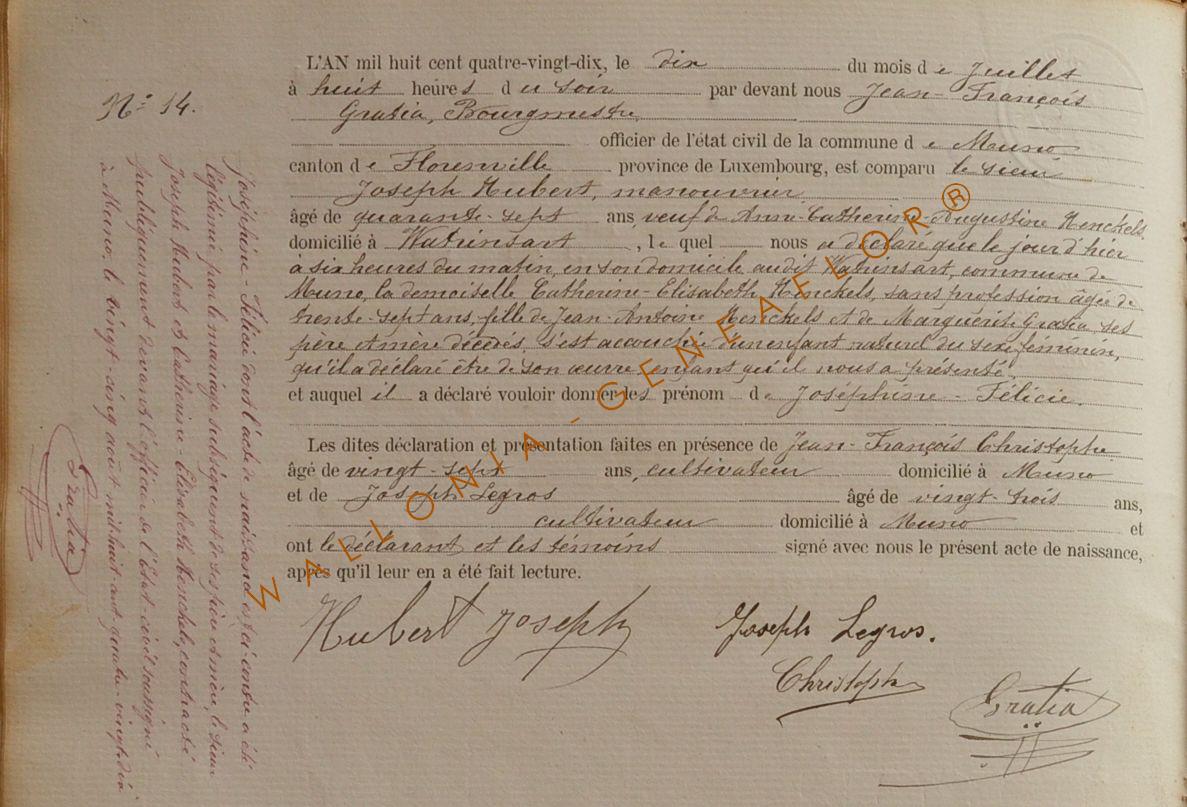 L'AN mil huit cent quatre-vingt-dix, le dix du mois de Juillet
à huit heures du soir par devant nous Jean-François
Gratia, Bourgmestre
officier de l'état civil de la commune de Muno
canton de Florenville province de Luxembourg, est comparu le sieur
Joseph Hubert, manouvrier
âgé de quarante-sept ans, veuf de Anne-Catherine-Augustine Henckels,
domicilié à Watrinsart, le quel nous a déclaré que le jour d'hier
à six heures du matin, en son domicile audit Watrinsart, commune de
Muno, la demoiselle Catherine-Elisabeth Henckels, sans profession âgée de
trente-sept ans, fille de Jean-Antoine Henckels et de Marguerite Gratia, ses
père et mère décédés, s'est accouchée d'un enfant naturel du sexe féminin,
qu'il a déclaré être de son œuvre, enfant qu'il nous a présenté.
et auquel il a déclaré vouloir donner les prénom de Joséphine-Félicie.
Les dites déclaration et présentation faites en présence de Jean-François Christophe
âgé de vingt-sept ans, cultivateur domicilié à Muno
et de Joseph Legros âgé de vingt-trois ans,
cultivateur domicilié à Muno et
ont le déclarant et les témoins signé avec nous le présent acte de naissance,
après qu'il leur en a été fait lecture.
Hubert Joseph
Joseph Legros.
Christophe
Gratia
N° 14.
Joséphine-Félicie dont l'acte de naissance est ci-contre a été
légitimée par le mariage subséquent de ses père et mère, le sieur
Joseph Hubert et Catherine-Elisabeth Henckels, contracté
publiquement devant l'officier de l'Etat-civil soussigné
à Muno, le vingt-cinq août mil huit cent quatre-vingt-dix
Gratia
WALLONIA-GENEAFLOR®